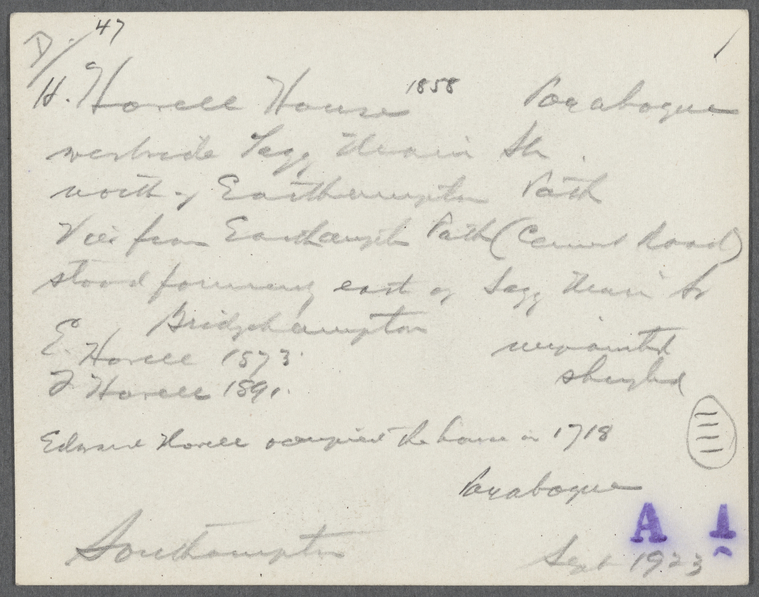 D/. 47
H. Howell House 1858 Poxabogue
west side Sagg Main Str.
north of Easthampton Path
View from Easthampton Path (Cement Road)
stood formerly east of Sagg Main Sr
Bridgehampton
E. Howell 1873. unpainted
Howell 1891. shingled
Edward Howell occupied the house in 1718
Poxabogue
A 1
Southampton Sept 1923